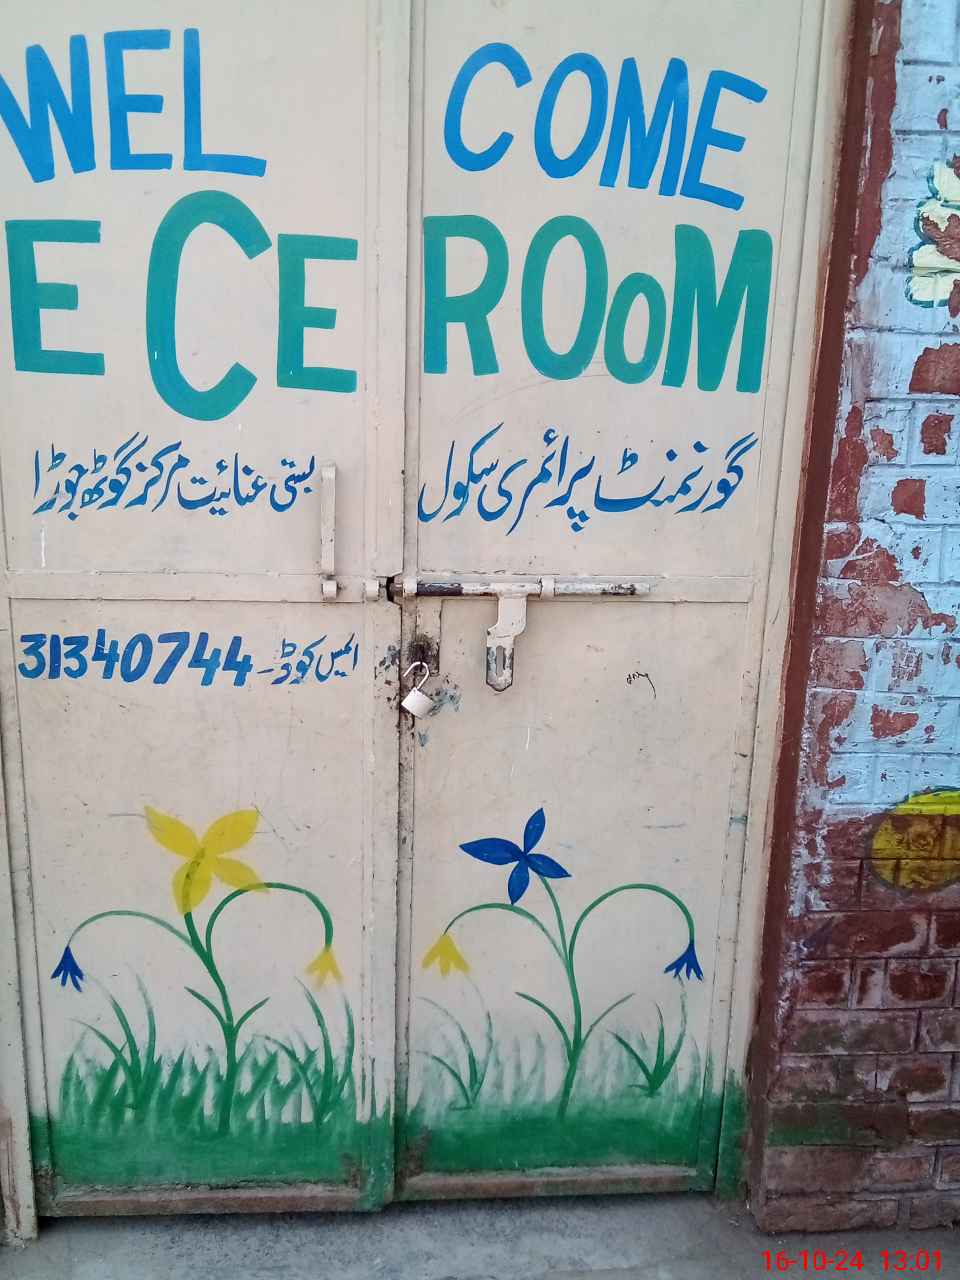 WEL COME
ECE ROOM
گورنمنٹ پرائمری سکول بستی عنائیت مرکز گوٹھ جوڑا
ایمس کوڈ۔ 31340744
16-10-24 13:01